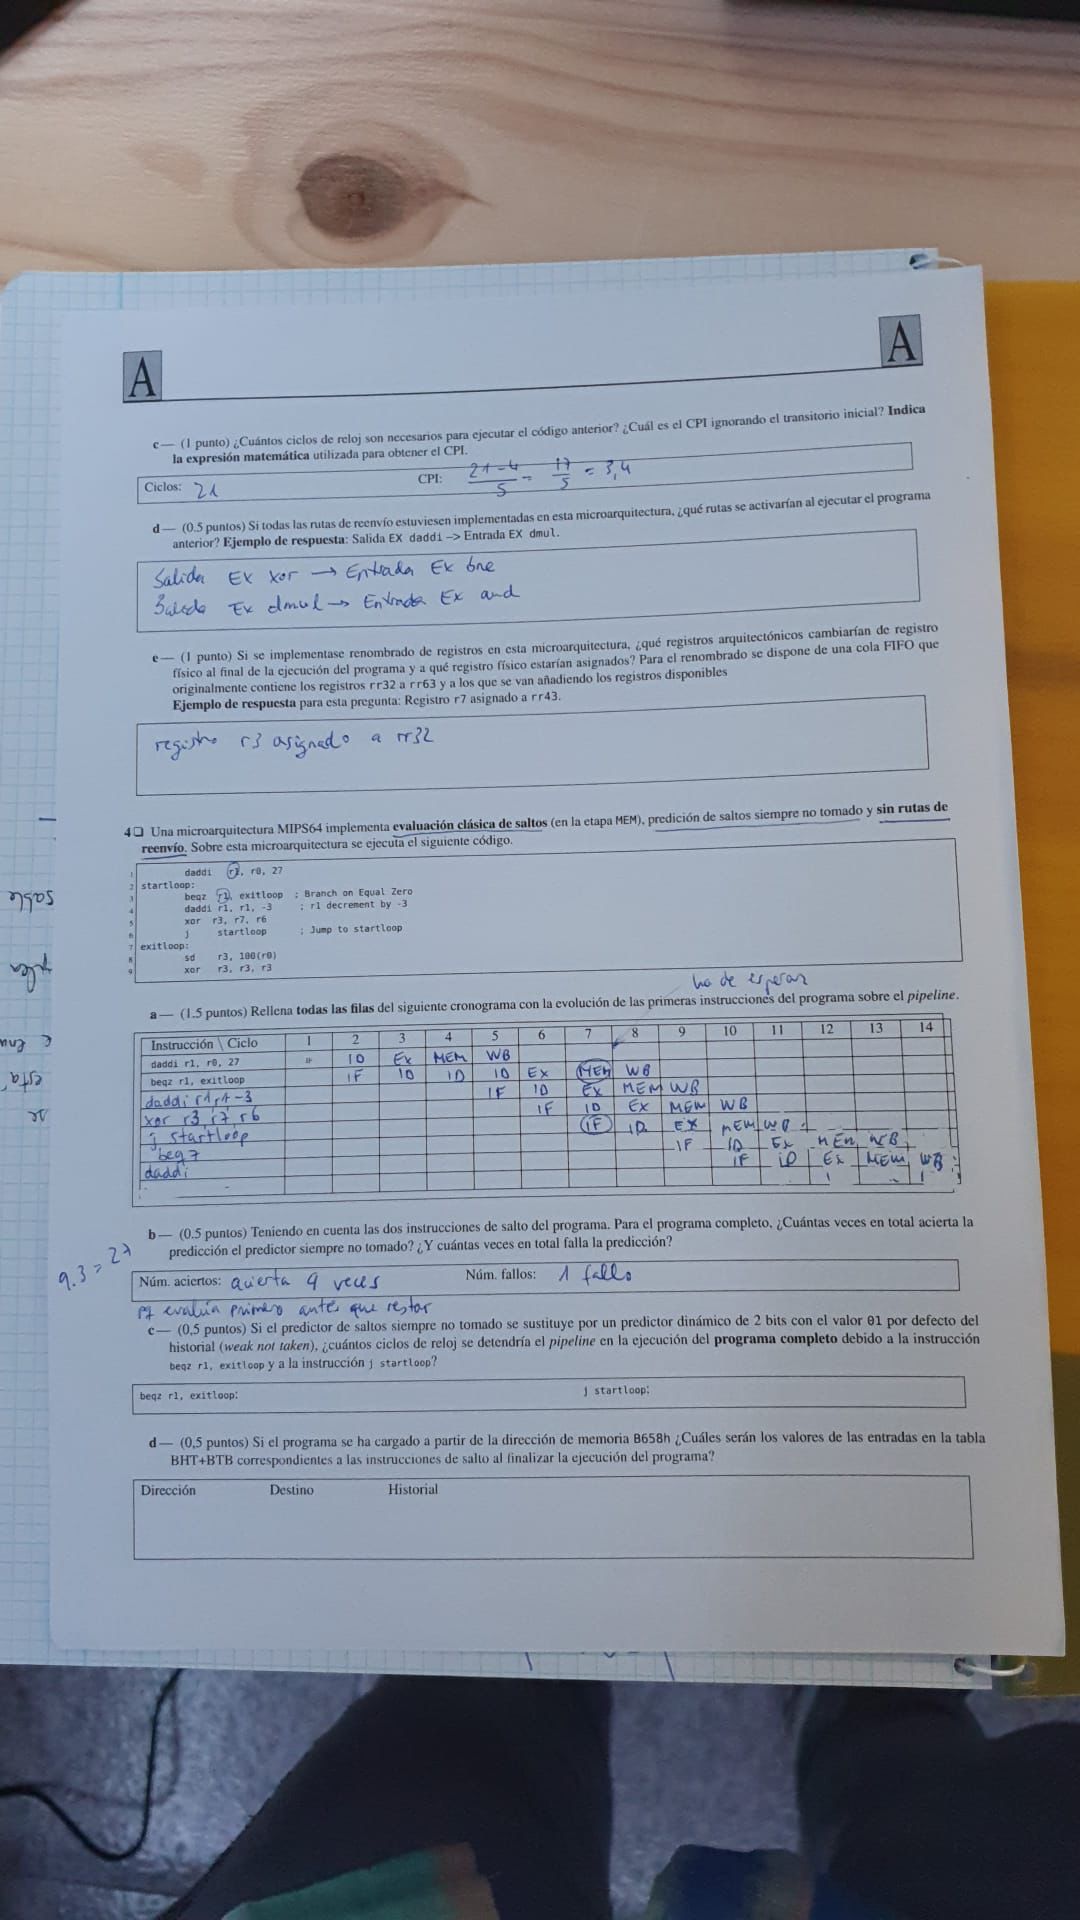 A
A
c— (1 punto) ¿Cuántos ciclos de reloj son necesarios para ejecutar el código anterior? ¿Cuál es el CPI ignorando el transitorio inicial? Indica
la expresión matemática utilizada para obtener el CPI.
Ciclos: 21 CPI: 21-4 / 5 = 17 / 5 = 3,4
d— (0.5 puntos) Si todas las rutas de reenvío estuviesen implementadas en esta microarquitectura, ¿qué rutas se activarían al ejecutar el programa
anterior? Ejemplo de respuesta: Salida EX daddi —> Entrada EX dmul.
Salida Ex xor → Entrada Ex bne
Salida Ex dmul → Entrada Ex and
e— (1 punto) Si se implementase renombrado de registros en esta microarquitectura, ¿qué registros arquitectónicos cambiarían de registro
físico al final de la ejecución del programa y a qué registro físico estarían asignados? Para el renombrado se dispone de una cola FIFO que
originalmente contiene los registros rr32 a rr63 y a los que se van añadiendo los registros disponibles
Ejemplo de respuesta para esta pregunta: Registro r7 asignado a rr43.
registro r3 asignado a rr32
4❑ Una microarquitectura MIPS64 implementa evaluación clásica de saltos (en la etapa MEM), predición de saltos siempre no tomado y sin rutas de
reenvío. Sobre esta microarquitectura se ejecuta el siguiente código.
1 daddi r1, r0, 27
2 startloop:
3 beqz r1, exitloop ; Branch on Equal Zero
4 daddi r1, r1, -3 ; r1 decrement by -3
5 xor r3, r7, r6
6 j startloop ; Jump to startloop
7 exitloop:
8 sd r3, 100(r0)
9 xor r3, r3, r3
ha de esperar
a— (1.5 puntos) Rellena todas las filas del siguiente cronograma con la evolución de las primeras instrucciones del programa sobre el pipeline.
Instrucción \ Ciclo 1 2 3 4 5 6 7 8 9 10 11 12 13 14
daddi r1, r0, 27 IF ID Ex MEM WB
beqz r1, exitloop IF ID ID ID Ex MEM WB
daddi r1,r1-3 IF ID Ex MEM WB
xor r3, r7, r6 IF ID Ex MEM WB
j startloop IF ID EX MEM WB
beqz IF ID Ex MEM WB
daddi IF ID Ex MEM WB
b— (0.5 puntos) Teniendo en cuenta las dos instrucciones de salto del programa. Para el programa completo, ¿Cuántas veces en total acierta la
predicción el predictor siempre no tomado? ¿Y cuántas veces en total falla la predicción?
9.3 = 27
Núm. aciertos: acierta 9 veces Núm. fallos: 1 fallo
evalúa primero antes que restar
c— (0,5 puntos) Si el predictor de saltos siempre no tomado se sustituye por un predictor dinámico de 2 bits con el valor 01 por defecto del
historial (weak not taken), ¿cuántos ciclos de reloj se detendría el pipeline en la ejecución del programa completo debido a la instrucción
beqz r1, exitloop y a la instrucción j startloop?
beqz r1, exitloop: j startloop:
d— (0,5 puntos) Si el programa se ha cargado a partir de la dirección de memoria B658h ¿Cuáles serán los valores de las entradas en la tabla
BHT+BTB correspondientes a las instrucciones de salto al finalizar la ejecución del programa?
Dirección Destino Historial